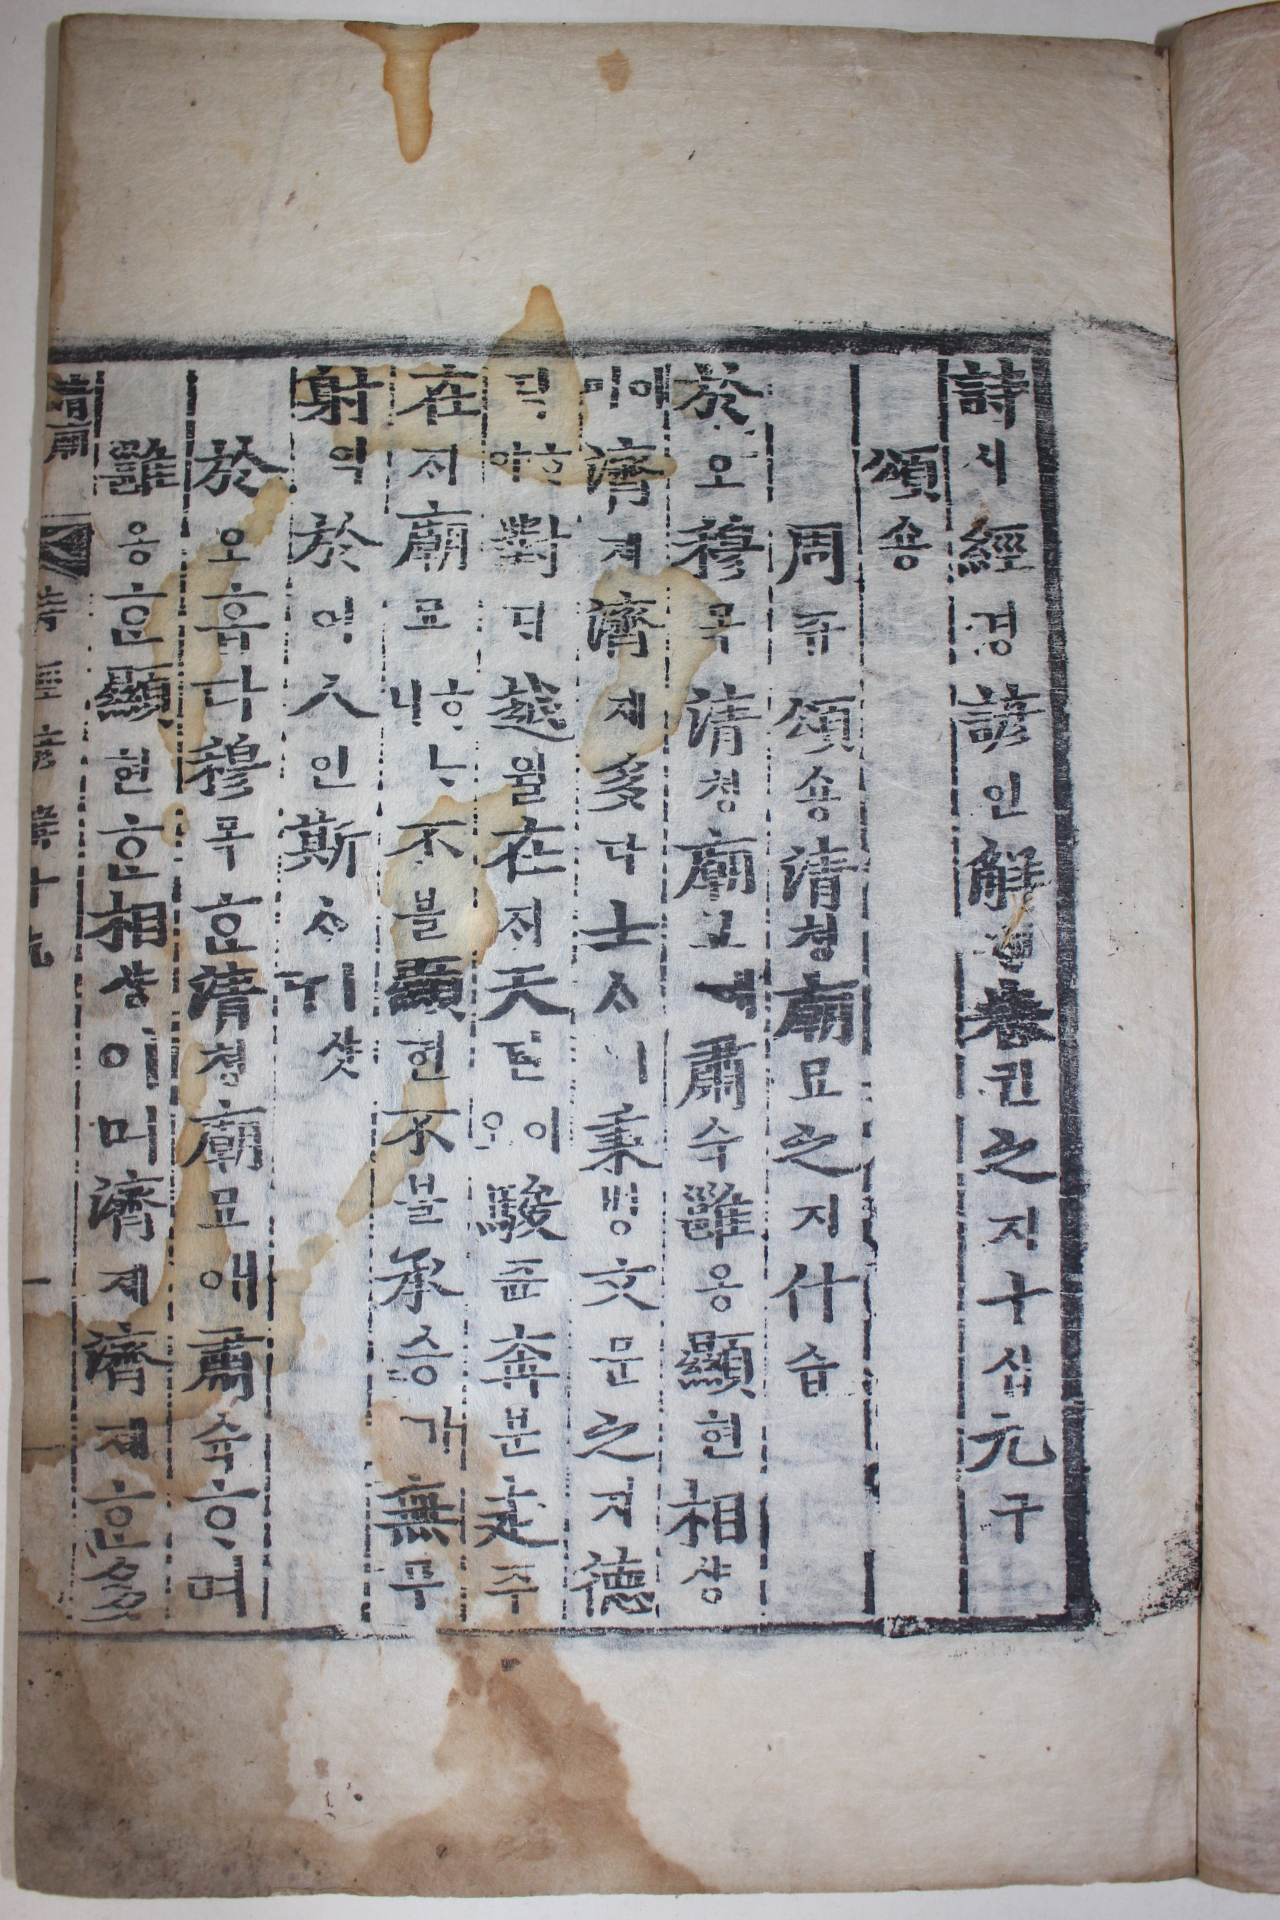 詩시經경諺언解ᄒᆡ卷권之지十십九구
頌숑
周쥬頌숑淸쳥廟묘之지什습
於오穆목淸쳥廟묘애肅슉雝옹顯현相샹
이미濟졔濟졔多다士ᄉᆞㅣ秉병文문之지德
덕ᄒᆞ야對ᄃᆡ越월在ᄌᆡ天텬이오駿쥰奔분走주
在ᄌᆡ廟묘ᄒᆞᄂᆞ니不블顯현不블承승가無무
射역於어人인斯ᄉᆞㅣ샷다
於오홉다穆목ᄒᆞᆫ淸쳥廟묘애肅슉ᄒᆞ며
雝옹ᄒᆞᆫ顯현ᄒᆞᆫ相샹이미濟졔濟졔ᄒᆞᆫ多
淸廟 詩經諺解十九 一